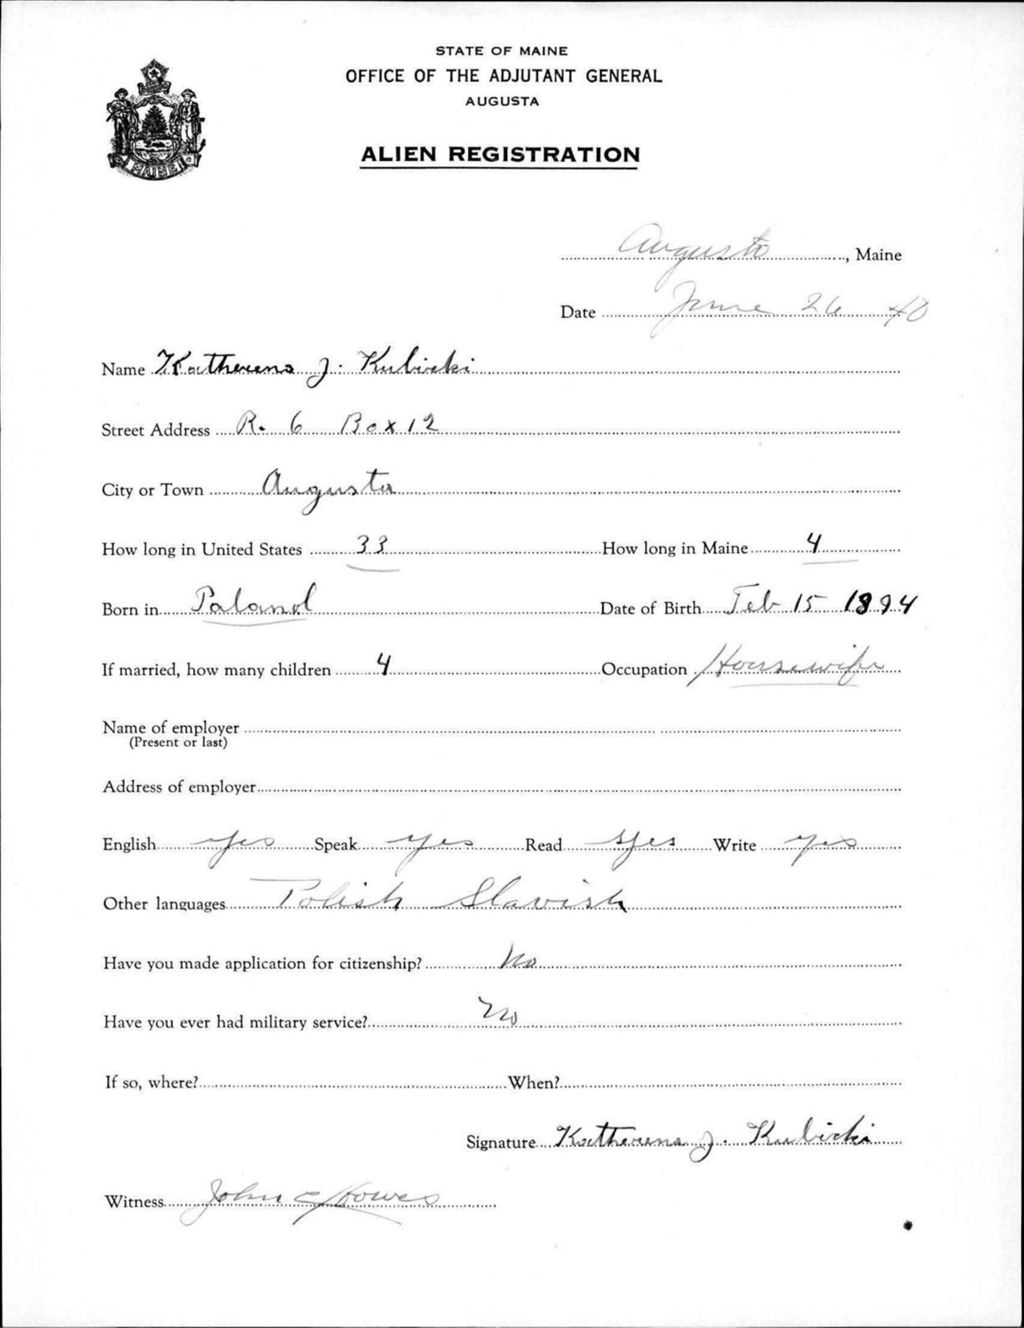 STATE OF MAINE
OFFICE OF THE ADJUTANT GENERAL
AUGUSTA
ALIEN REGISTRATION
MAINE
Augusta, Maine
Date June 26 40
Name Katherena J. Kubicki
Street Address R. 6 Box 12
City or Town Augusta
How long in United States 33 How long in Maine 4
Born in Poland Date of Birth Feb 15 1894
If married, how many children 4 Occupation Housewife
Name of employer
(Present or last)
Address of employer
English yes Speak yes Read yes Write yes
Other languages Polish Slavish
Have you made application for citizenship? No
Have you ever had military service? No
If so, where? When?
Signature Katherena J. Kubicki
Witness John C Howes